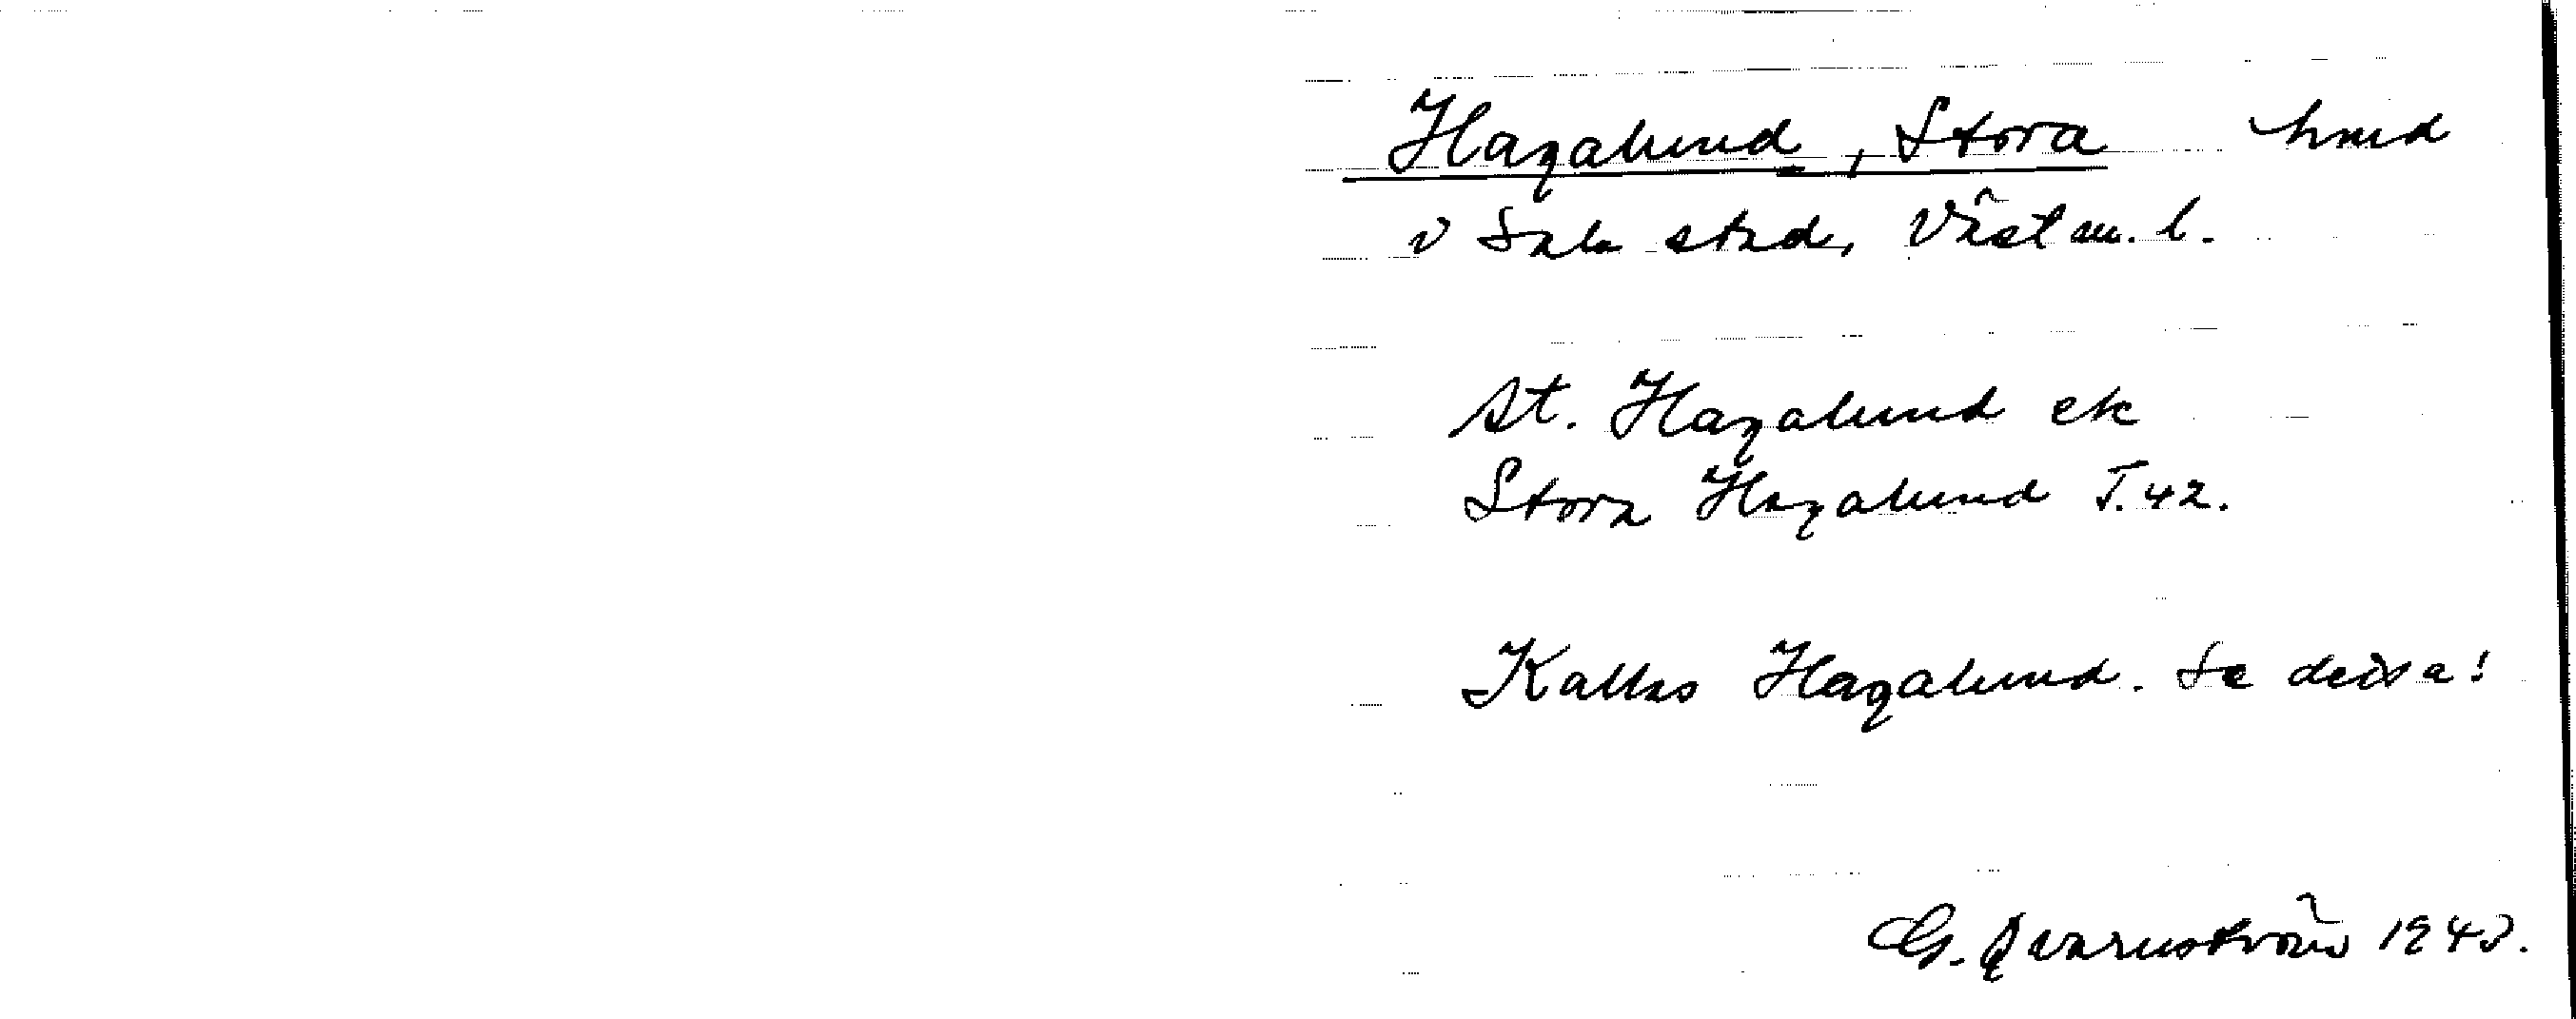 Hagalund, Stora hmd
v Sala stad, Västm. l.
St. Hagalund ek
Stora Hagalund T.42.
Kallas Hagalund. Se dessa!
G. Qvarnström 1943.